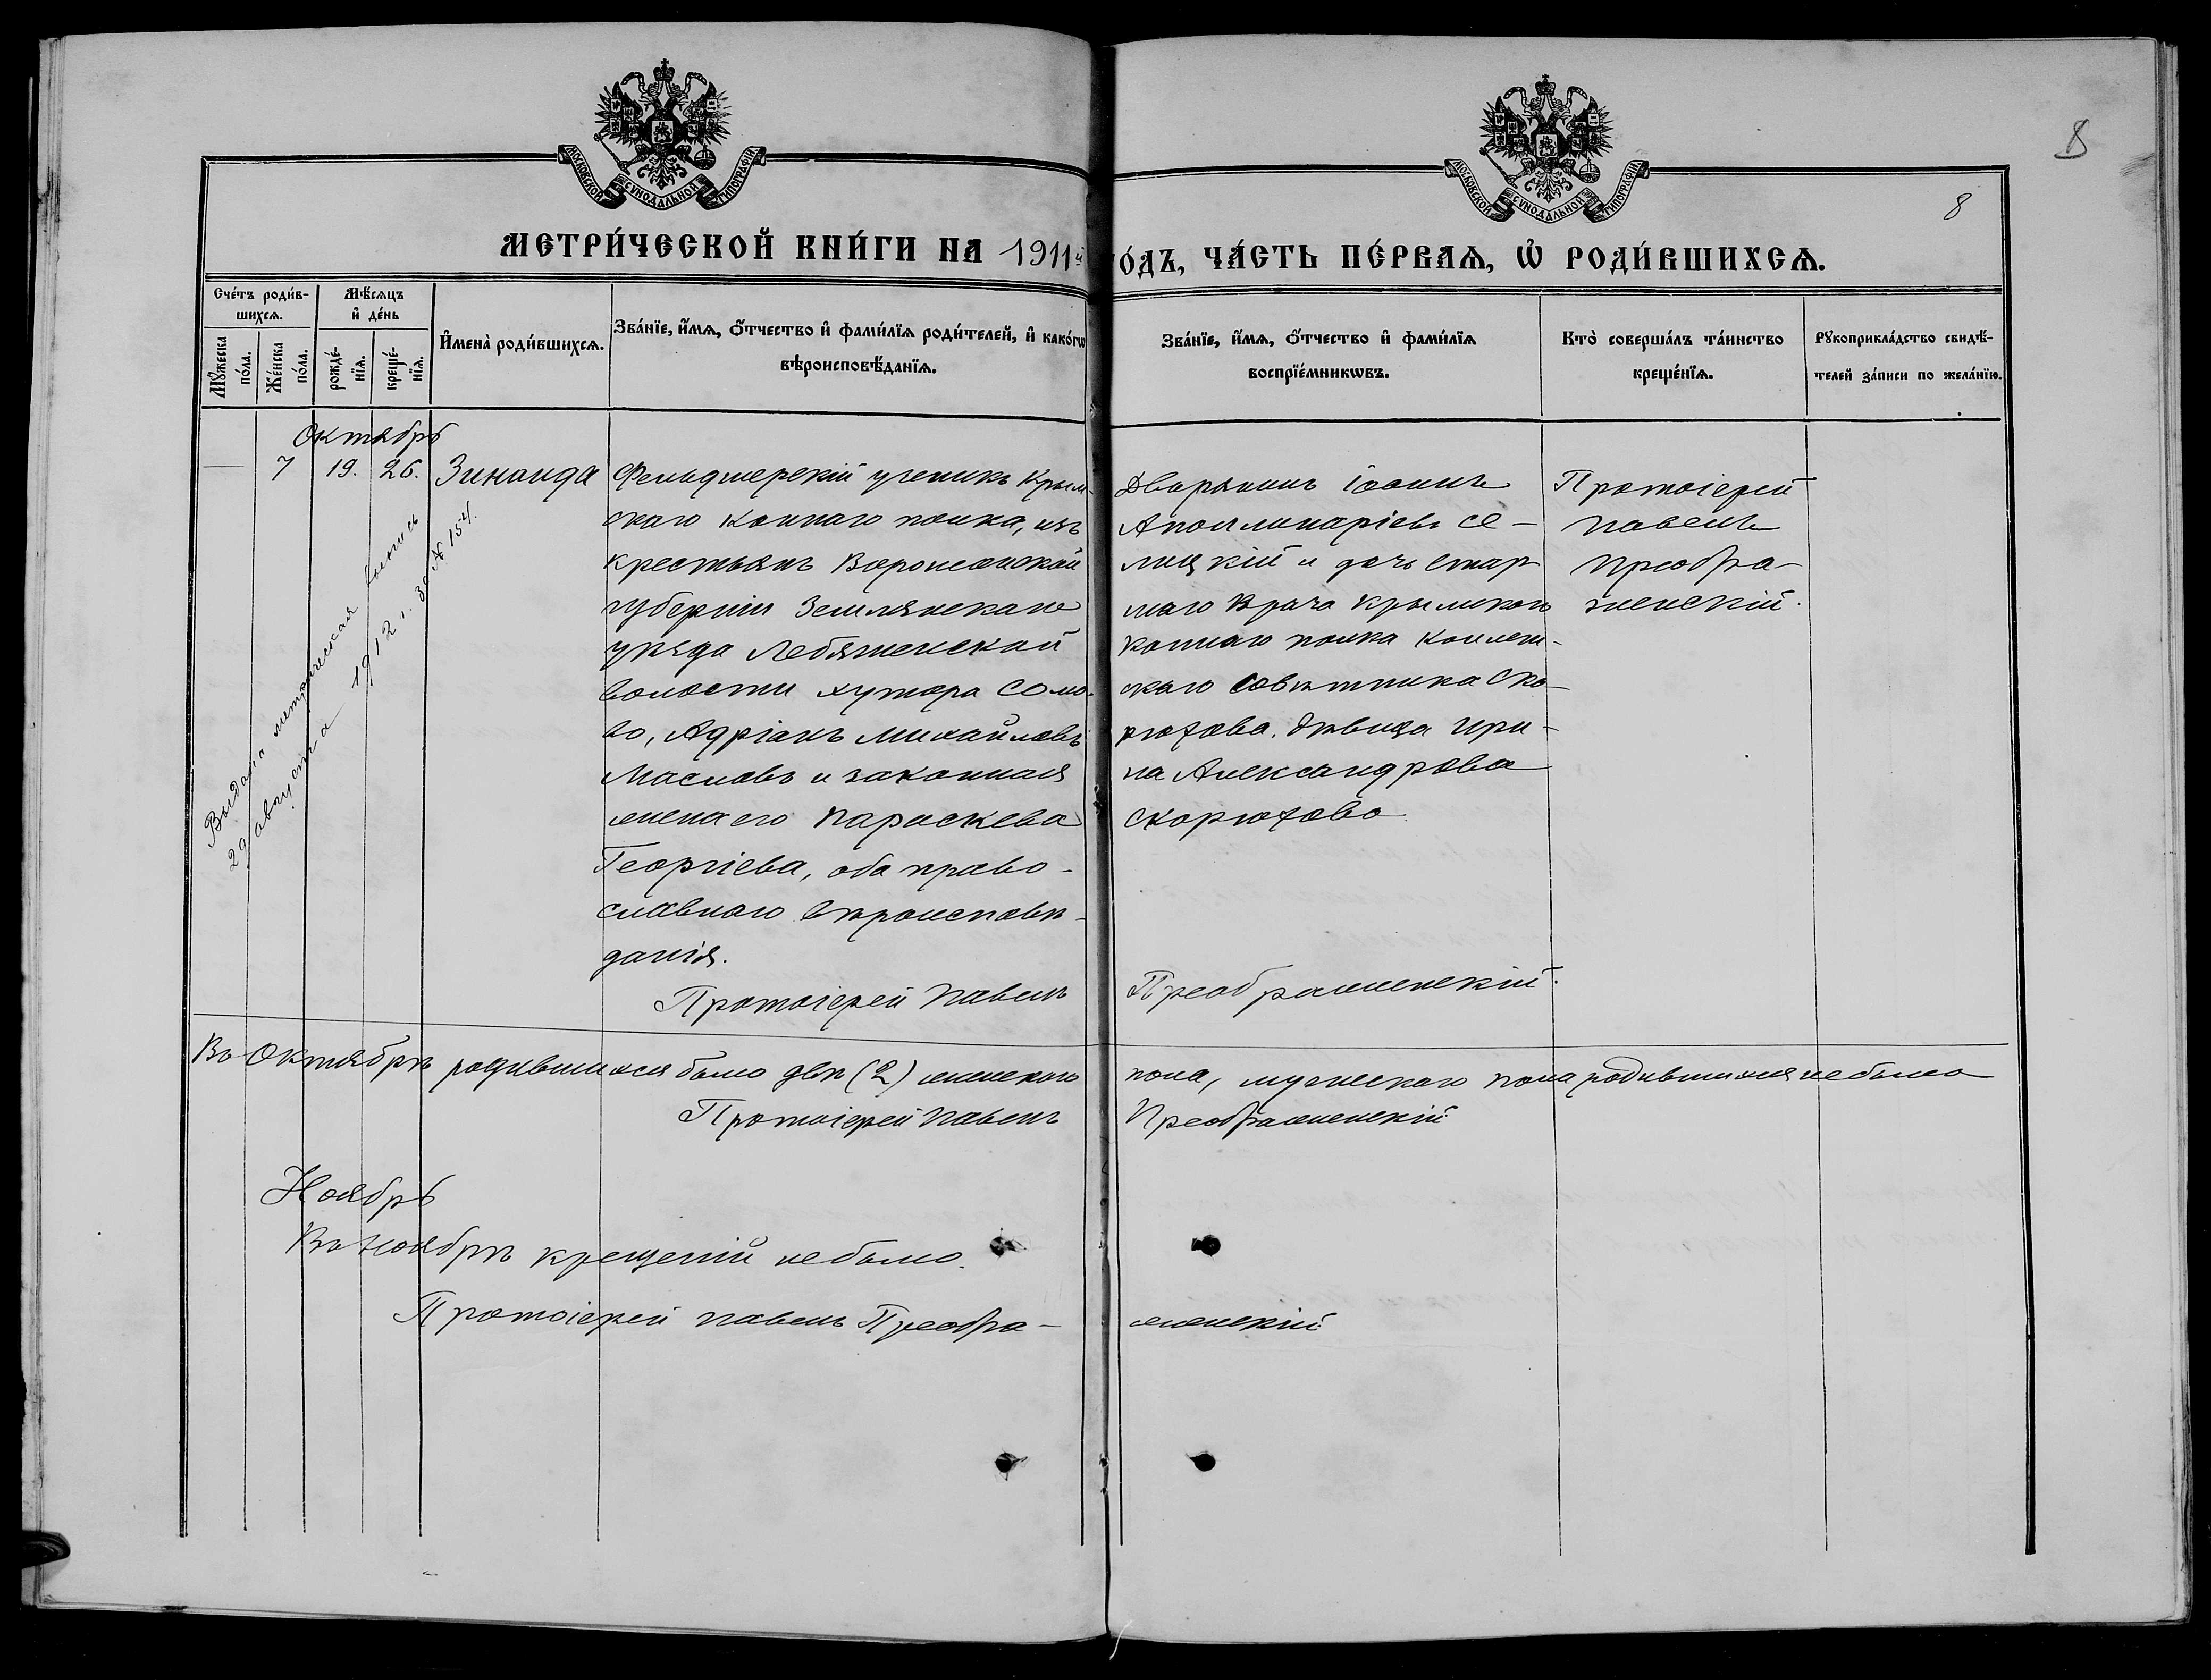 8
8
МОСКОВСКОЙ СѴНОДАЛЬНОЙ ТИПОГРАФІИ
МОСКОВСКОЙ СѴНОДАЛЬНОЙ ТИПОГРАФІИ
МЕТРИ́ЧЕСКОЙ КНИ́ГИ НА 1911й
О́ДЪ, ЧА́СТЬ ПЕ́РВАѦ, Ѡ҆ РОДИ́ВШИХСѦ.
Сче́тъ роди́в-
шихсѧ.
Мѹ́жеска
по́ла.
Же́нска
по́ла.
Мѣ́сѧцъ
и҆ де́нь
рожде́-
нїѧ.
креще́-
нїѧ.
И҆мена̀ роди́вшихсѧ.
Зва́нїе, и҆́мѧ, ѻ҆́тчество и҆ фами́лїѧ роди́телей, и҆ како́гѡ
вѣроисповѣ́данїѧ.
Зва́нїе, и҆́мѧ, ѻ҆́тчество и҆ фами́лїѧ
воспрїе́мникѡвъ.
Кто̀ соверша́лъ та́инство
креще́нїѧ.
Рꙋкоприкла́дство свидѣ́-
телей за́писи по жела́нїю.
Октябрь
— 7 19. 26. Зинаида
Фельдшерскій ученикъ Крым-
скаго Коннаго полка, изъ
крестьянъ Воронежской
губерніи Землянскаго
уѣзда Лебяженской
волости хутора Сомо-
во, Адріанъ Михайловъ
Масловъ и законная
жена его Параскева
Георгіева, оба право-
славнаго вѣроисповѣ-
данія.
Протоіерей Павелъ
Дворянинъ Іоаннъ
Аполлинаріевъ Се-
лицкій и дочь Стар-
шаго Врача Крымскаго
Коннаго полка Коллеж-
скаго Совѣтника Ско-
рюхова, дѣвица Ири-
на Александрова
Скорюхова
Преображенскій.
Протоіерей
Павелъ
Преобра-
женскій.
Выдана метрическая выпись
29 августа 1912 г. за № 154.
Въ Октябрѣ родившихся было двѣ (2) женскаго пола, мужескаго пола родившихся не было
Протоіерей Павелъ Преображенскій
Ноябрь
Въ Ноябрѣ крещеній не было.
Протоіерей Павелъ Преображенскій